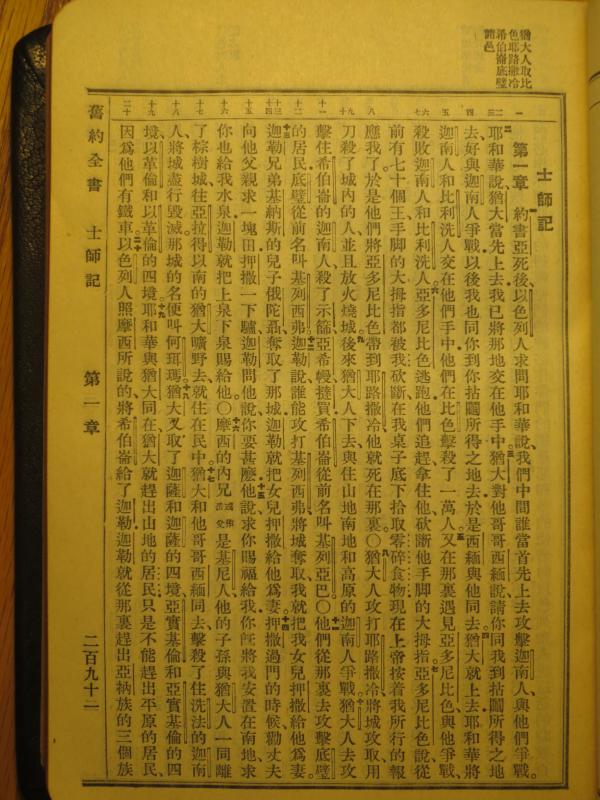 猶大人取比
色耶路撒冷
希伯崙底璧
諸邑
士師記
第一章 約書亞死後、以色列人求問耶和華說、我們中間誰當首先上去攻擊迦南人、與他們爭戰。
二耶和華說、猶大當先上去、我已將那地交在他手中。三猶大對他哥哥西緬說、請你同我到拈鬮所得之地
去、好與迦南人爭戰、以後我也同你到你拈鬮所得之地去、於是西緬與他同去。四猶大就上去、耶和華將
迦南人和比利洗人交在他們手中、他們在比色擊殺了一萬人。五又在那裏遇見亞多尼比色、與他爭戰、
殺敗迦南人和比利洗人。六亞多尼比色逃跑、他們追趕、拿住他、砍斷他手脚的大拇指。七亞多尼比色說、從
前有七十個王、手脚的大拇指都被我砍斷、在我桌子底下拾取零碎食物、現在上帝按着我所行的報
應我了、於是他們將亞多尼比色帶到耶路撒冷、他就死在那裏。〇八猶大人攻打耶路撒冷、將城攻取、用
刀殺了城內的人、並且放火燒城。九後來猶大人下去、與住山地、南地、和高原的迦南人爭戰。十猶大人去攻
擊住希伯崙的迦南人、殺了示篩、亞希幔、撻買、希伯崙從前名叫基列亞巴。〇十一他們從那裏去攻擊底璧
的居民、底璧從前名叫基列西弗。十二迦勒說、誰能攻打基列西弗、將城奪取、我就把我女兒押撒給他為妻。
十三迦勒兄弟基納斯的兒子俄陀聶奪取了那城、迦勒就把女兒押撒給他為妻。十四押撒過門的時候、勸丈夫
向他父親求一塊田、押撒一下驢、迦勒問他說、你要甚麽。十五他說、求你賜福給我、你旣將我安置在南地、求
你也給我水泉、迦勒就把上泉下泉賜給他。〇十六摩西的內兄或作岳父是基尼人、他的子孫與猶大人一同離
了棕樹城、往亞拉得以南的猶大曠野去、就住在民中。十七猶大和他哥哥西緬同去、擊殺了住洗法的迦南
人、將城盡行毀滅、那城的名便叫何珥瑪。十八猶大又取了迦薩、和迦薩的四境、亞實基倫、和亞實基倫的四
境、以革倫、和以革倫的四境。十九耶和華與猶大同在、猶大就趕出山地的居民、只是不能趕出平原的居民、
因為他們有鐵車。二十以色列人照摩西所說的、將希伯崙給了迦勒、迦勒就從那裏趕出亞衲族的三個族
舊約全書 士師記 第一章 二百九十二